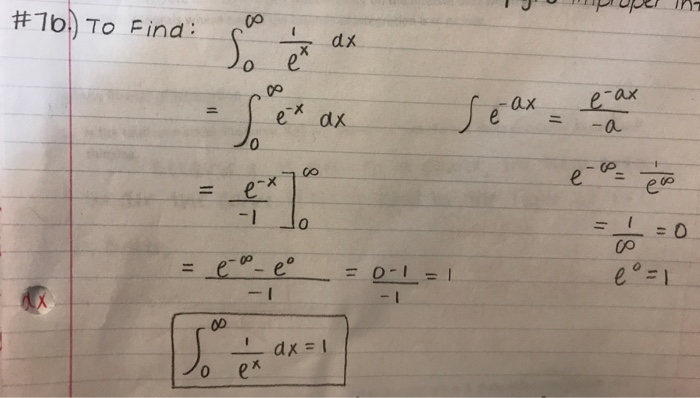 Improper
#7b.) To Find: ∫₀^∞ 1/e^x dx
= ∫₀^∞ e^-x dx
∫ e^-ax = e^-ax/-a
= e^-x/-1 ]₀^∞
e^-∞ = 1/e^∞
= 1/∞ = 0
= e^-∞ - e^0/-1 = 0-1/-1 = 1
e^0 = 1
dx
∫₀^∞ 1/e^x dx = 1